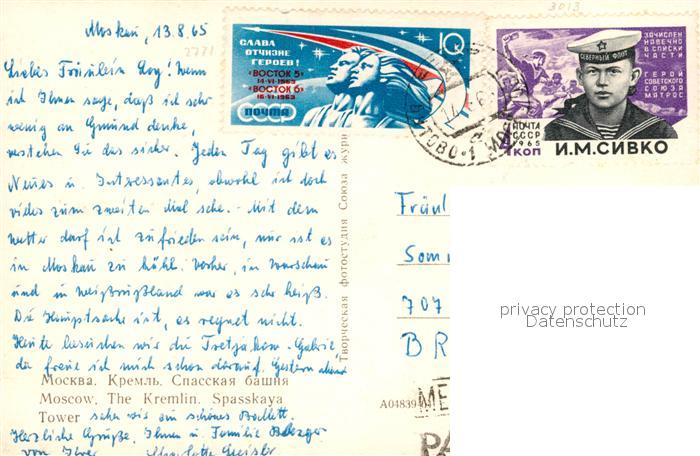 Moskau, 13.8.65
2771
Liebes Fräulein Loy! Wenn
ich Ihnen sage, daß ich sehr
wenig an Gmünd denke,
verstehen Sie das sicher. Jeden Tag gibt es
Neues u. Interessantes, obwohl ich doch
vieles zum zweiten Mal sehe. - Mit dem
Wetter darf ich zufrieden sein, nur ist es
in Moskau zu kühl. Vorher, in Warschau
und in Weißrußland war es sehr heiß.
Die Hauptsache ist, es regnet nicht.
Heute besuchen wir die Tretjakow-Galerie,
da freue ich mich schon darauf. Gestern abend
Москва. Кремль. Спасская башня
Moscow. The Kremlin. Spasskaya
Tower
sahen wir ein schönes Ballett.
Herzliche Grüße, Ihnen u. Familie
von Ihrer Charlotte Geisler
Творческая фотостудия Союза журн
СЛАВА
ОТЧИЗНЕ
ГЕРОЕВ!
"ВОСТОК 5"
14-VI-1963
"ВОСТОК 6"
16-VI-1963
ПОЧТА
10К
3013
ЗАЧИСЛЕН
НАВЕЧНО
В СПИСКИ
ЧАСТИ
ГЕРОЙ
СОВЕТСКОГО
СОЮЗА
МАТРОС
СЕВЕРНЫЙ ФЛОТ
ПОЧТА
СССР
1965
4 КОП
И.М.СИВКО
Fräul
Som
707
BR
privacy protection
Datenschutz
A04839